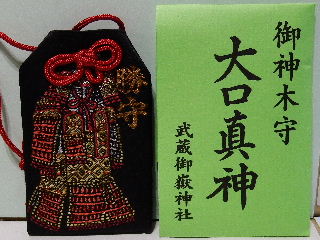 勝守
御神木守
大口真神
武蔵御嶽神社